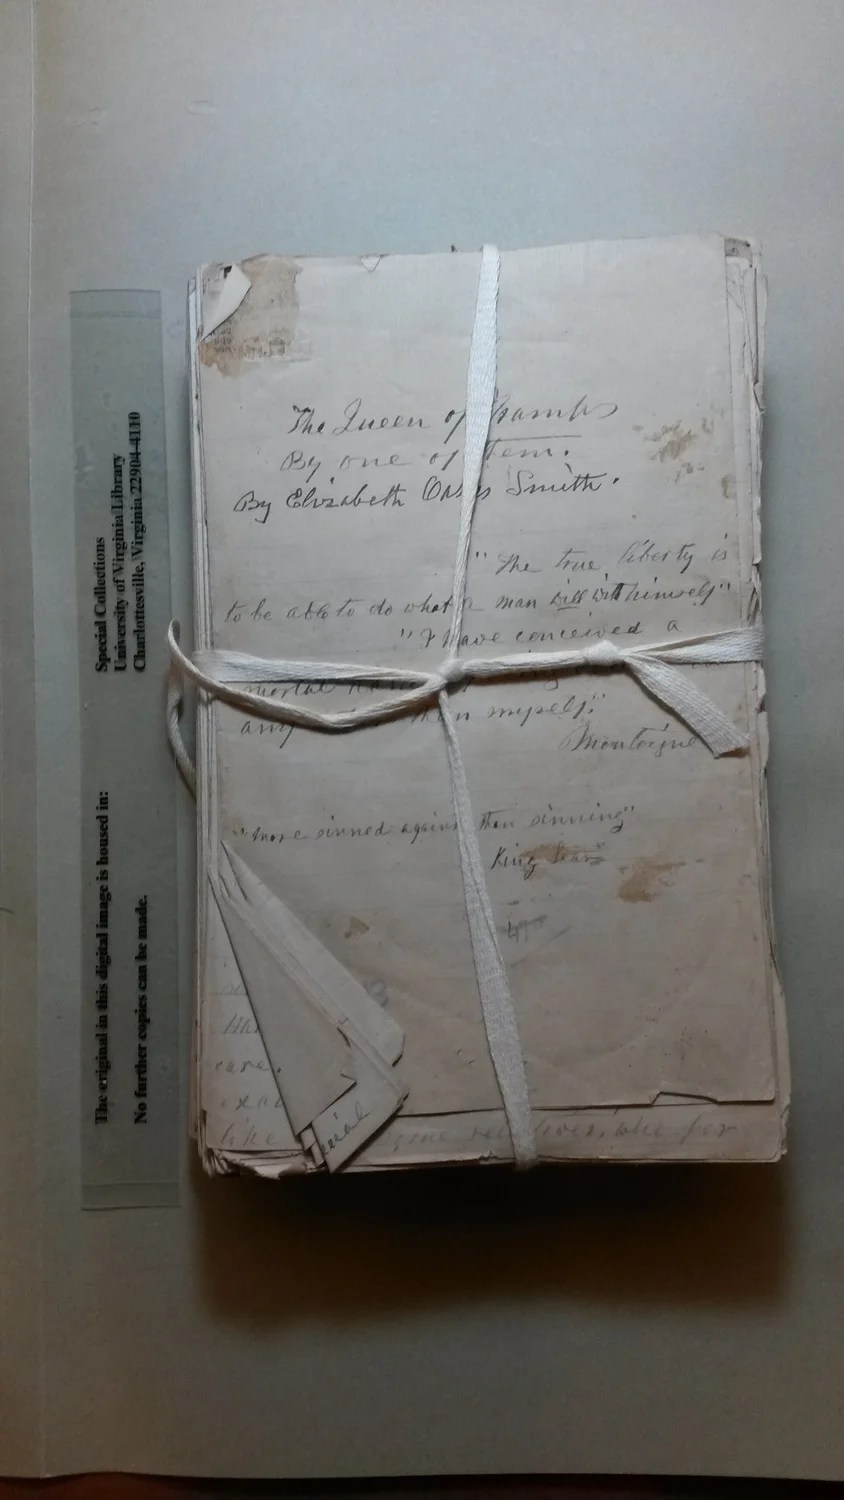 The Queen of Tramps
By one of Tem.
By Elizabeth Oakes Smith.
"The true liberty is
to be able to do what a man will with himself"
"I have conceived a
mortal
any than myself."
Montaigne
"more sinned against than sinning"
King Lear"
470
care.
like some relatives, who for
Special Collections
University of Virginia Library
Charlottesville, Virginia 22904-4110
The original in this digital image is housed in:
No further copies can be made.